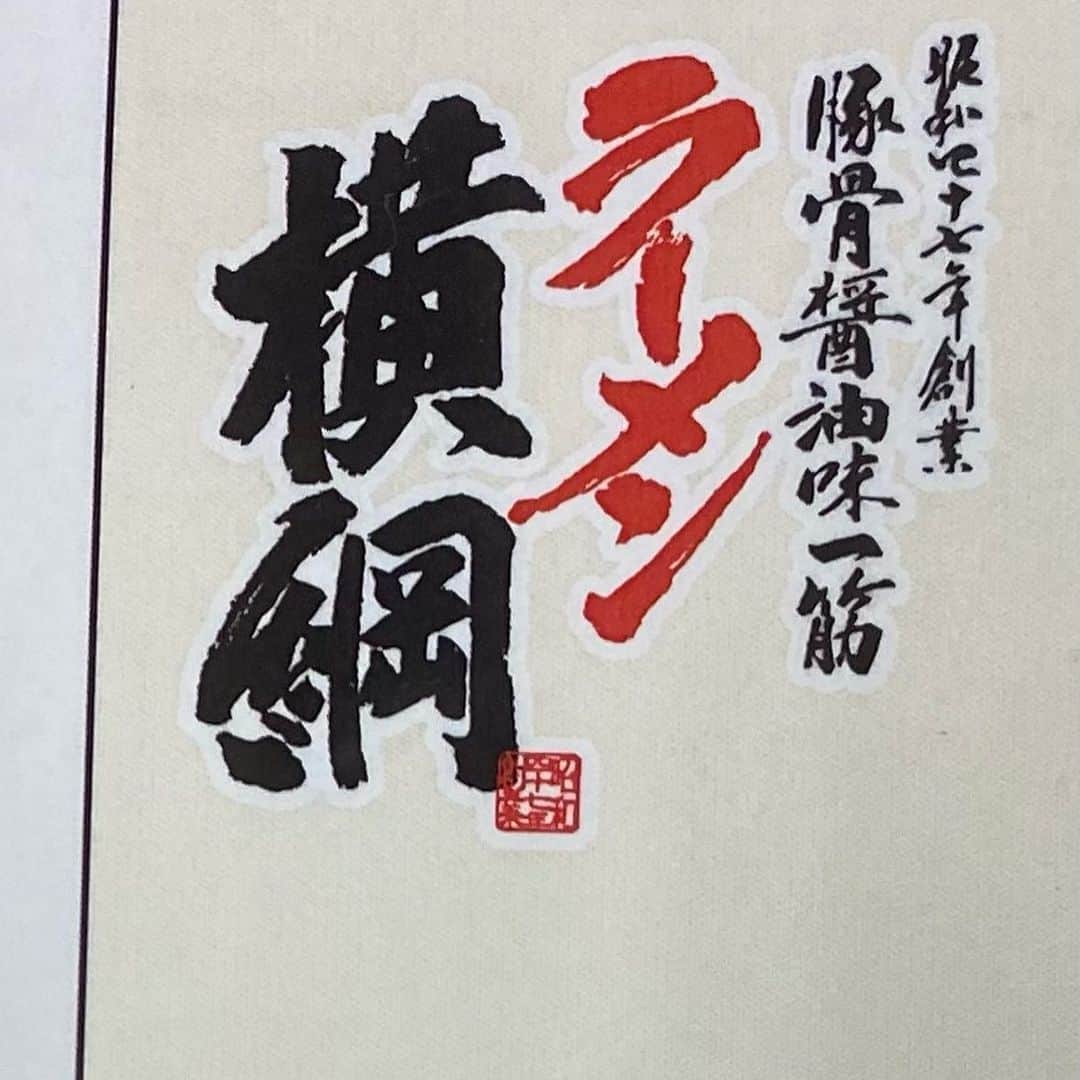 昭和四十七年創業
豚骨醤油味一筋
ラーメン
横綱